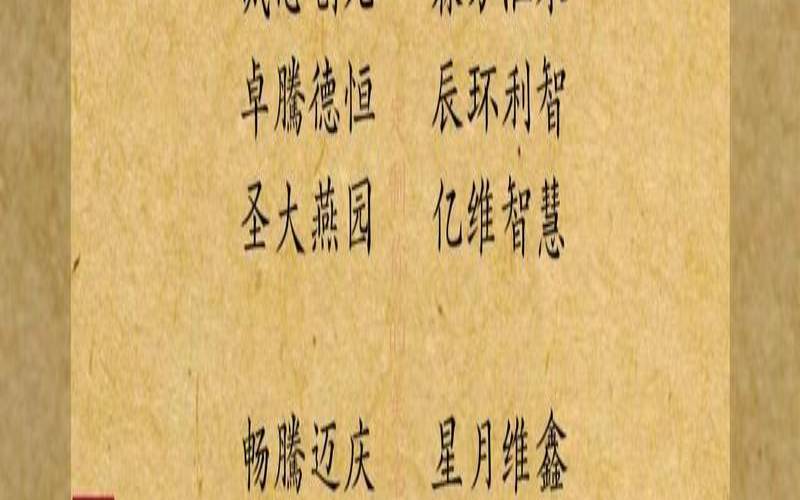 卓騰德恒 辰环利智
圣大燕园 亿维智慧
畅騰迈庆 星月维鑫